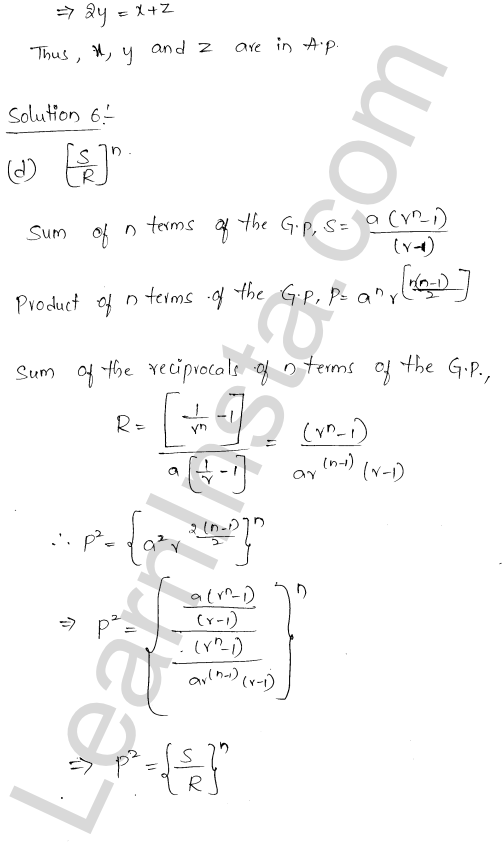 ⇒ 2y = x+z
Thus, x, y and z are in A.p.
Solution 6:-
(d) [S/R]^n.
Sum of n terms of the G.p, S = a(r^n-1)/(r-1)
Product of n terms of the G.p, P= a^n r^[n(n-1)/2]
Sum of the reciprocals of n terms of the G.P.,
R = [1/r^n -1] / a[1/r -1] = (r^n-1) / ar^(n-1) (r-1)
∴ P² = {a² r^(2(n-1)/2)}^n
⇒ P² = { (a(r^n-1)/(r-1)) / ((r^n-1)/ar^(n-1)(r-1)) }^n
⇒ P² = {S/R}^n
LearnInsta.com